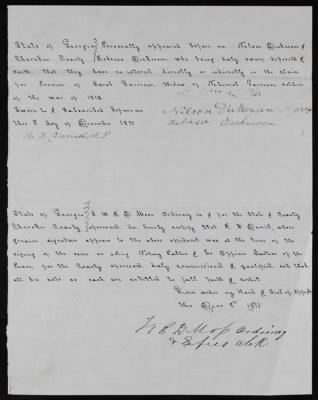 State of Georgia } Personally appeared before me Nelson Dickerson &
Cherokee County } Rebecca Dickerson, who being duly sworn deposeth &
saith that they have no interest directly or indirectly in the claim
for Pension of Sarah Garrison Widow of Nathaniel Garrison soldier
of the War of 1812
Sworn to & Subscribed before me
this 8 day of December 1871
Nelson Dickerson
Rebeca Dickerson
State of Georgia } I W. R. D. Moss Ordinary in & for the State & County
Cherokee County } aforesaid do hereby certify that
genuine signature appears to the above affidavit was at the time of the
signing of the same an acting Notary Public & Ex Officio Justice of the
Peace for the County aforesaid duly commissioned & qualified and that
all his acts as such are entitled to full faith & credit
Given under my Hand & Seal of Office
this Decr 8th 1871
W R D Moss Ordinary
& Exofficio Clk